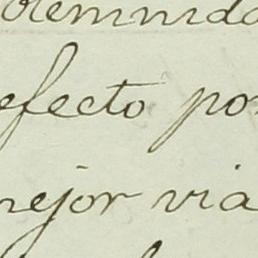 efecto por
mejor via